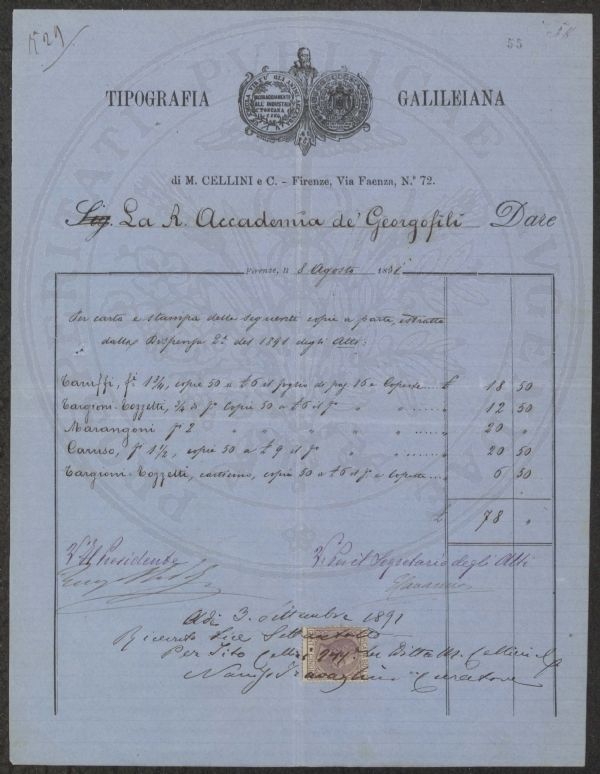 529
55
TIPOGRAFIA GALILEIANA
di M. CELLINI e C. - Firenze, Via Faenza, N.° 72.
Sig. La R. Accademia de' Georgofili Dare
Firenze, li 8 Agosto 1891
Per carta e stampa delle seguenti copie a parte, estratte
dalla Dispensa 2a del 1891 degli Atti:
Taruffi, fi 1 3/4, copie 50 a £ 6 il foglio di pag. 16 e Coperte.... £ 18 50
Targioni-Tozzetti, 3/4 di fo Copie 50 a £ 6 il fo " " .... " 12 50
Marangoni fi 2 " " " " .... " 20 "
Caruso, fi 1 1/2, copie 50 a £ 9 il fo " " .... " 20 50
Targioni-Tozzetti, copie 50 a £ 6 il fo e Coperte.... " 6 50
£ 78 "
Vo Il Presidente
Vo Per il Segretario degli Atti
Adì 3. settembre 1891
Ricevuto Lire Settantotto
Per Tito Cellini Ditta M. Cellini e C.
Curatore